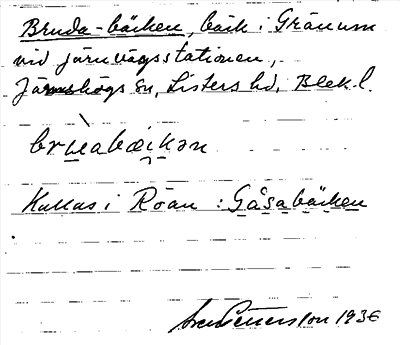 Bruda-bäcken, bäck i Gränum
vid järnvägsstationen,
Jämshögs sn, Listers hd, Blek. l.
brùabækən
Kallas i Röan : Gåsabäcken
Sven Petersson 1936